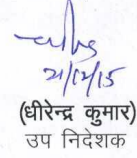 21/12/15
(धीरेन्द्र कुमार)
उप निदेशक